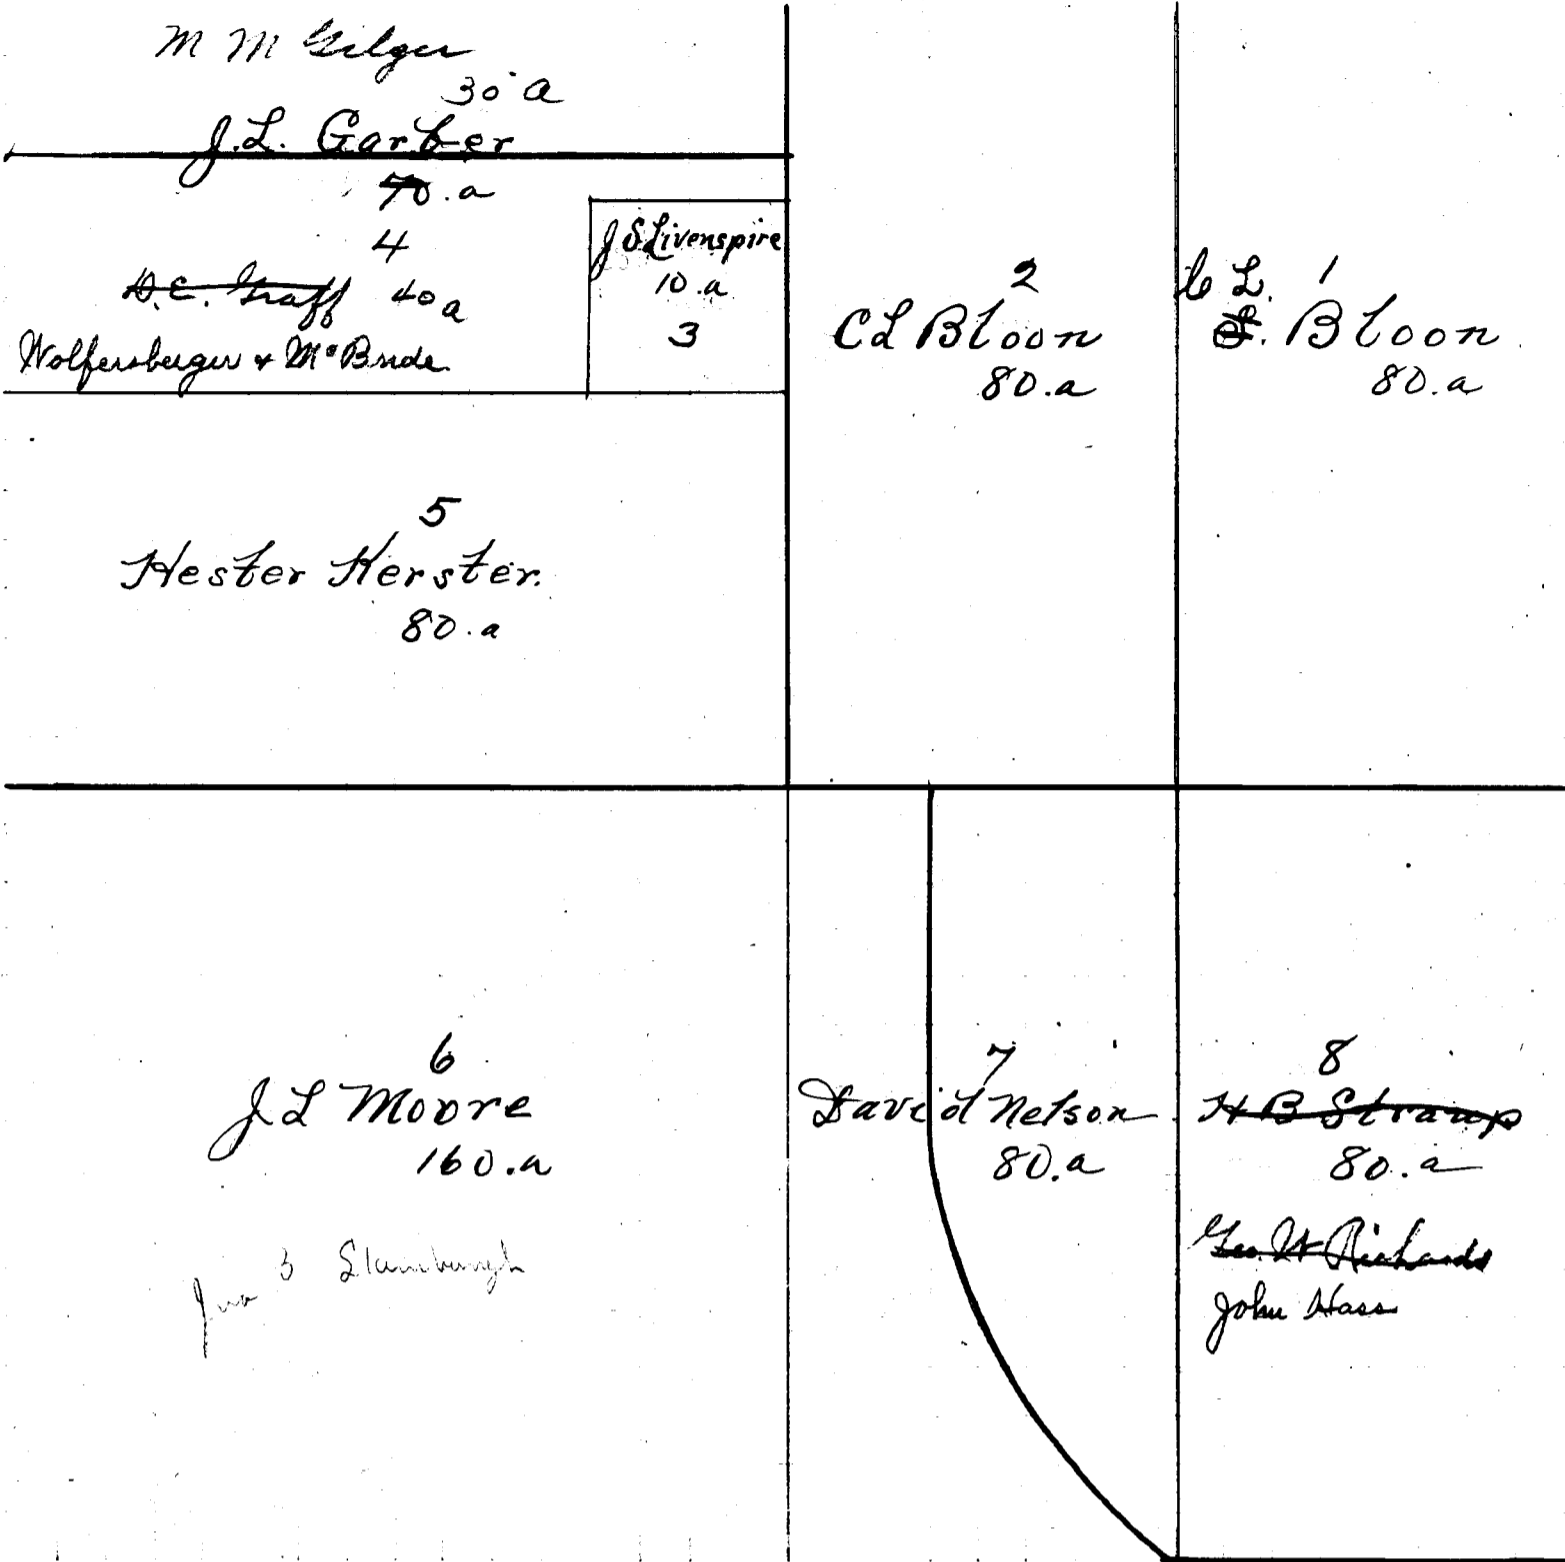 M M Gilger
30 a
J.L. Garber
70.a
4
D.E. Graff 40 a
Wolfersberger & McBride.
J S Livenspire
10.a
3
2
C L Bloon
80.a
1
C L.
S. Bloon
80.a
5
Hester Kerster.
80.a
6
J L Moore
160.a
Jno B Stambaugh
7
David Nelson
80.a
8
H B Stramp
80.a
Geo. W Richards
John Hass